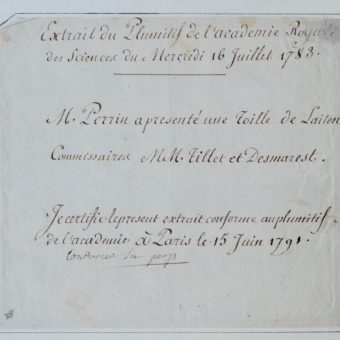 Extrait du Plumitif de l'academie Royale
des Sciences du Mercredi 16 Juillet 1783.
M. Perrin apresenté une Toille de Laiton
Commissaires MM. Tillet et Desmarest.
Je certifie lepresent extrait conforme au plumitif
de l'academie à Paris le 15 Juin 1791.
Condorcet